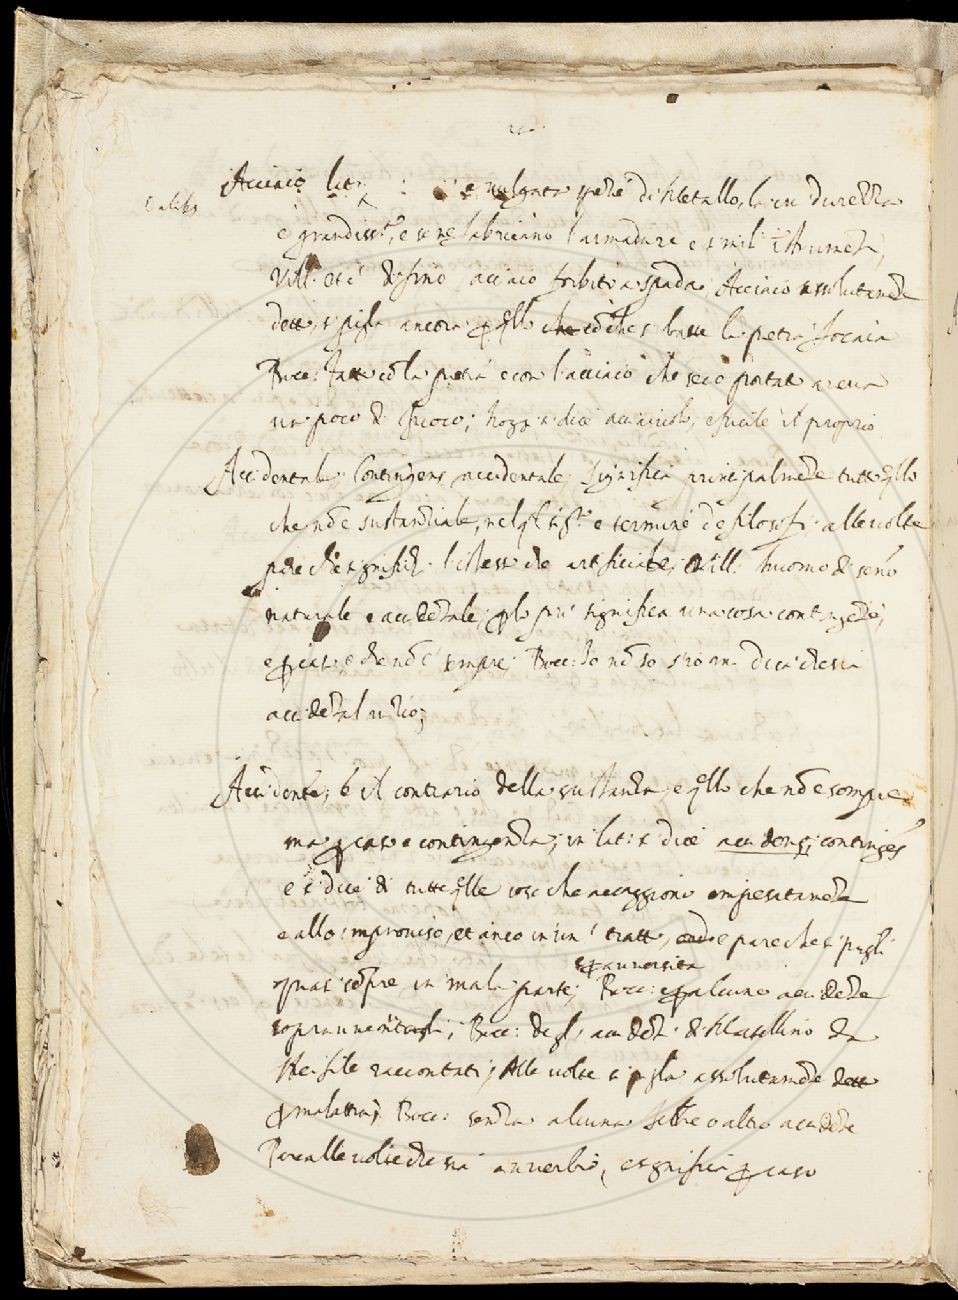 Calibs
Acciaio lat: è vulgata spezie di Metallo, la cui durezza
è grandiss.ª, e se ne fabricano l'armadure e simili istrumeti,
Vill. et i di fino acciaio forbite spada, Acciaio assolutamete
detto si piglia ancora p qllo che cō che si batte la pietra focaia
Bocc: fatto cō la pietra e con l'acciaio che seco portato aveva
un poco di fuoco; hoggi si dice acciaiolo, e fucile il proprio
Accidentale; Contingens accidentale; significa principalmēte tutto qllo
che nō è sustanziale, nel ql sigto è termine de filosofi; alle volte
pare che significhi l'istesso che artificiale; Vill. huomo di senno
naturale e accidētale; p lo più significa una cosa contingēte,
e p caso e che nō è sempre; Bocc: Io nō so s'io mi dica che sia
accidētal vitio;
Accidente, è il contrario della sustanza, e qllo che nō è sempre
ma p caso e contingenza; in lat: si dice accidens; contingēs
e si dice di tutte qlle cose che accaggiono impensatamēte
e allo improviso, et anco in un tratto, e pare che si pigli
p avversità
quasi sēpre in mala parte; Bocc: p alcuno accidēte
sopravvenutogli; Bocc: degli accidēti di Martellino da
Neifile raccontati; Alle volte si piglia assolutamēte detto
p malattia; Bocc: senza alcuna febre o altro accidēte
Pare alle volte che sia avverbio, e significa p caso